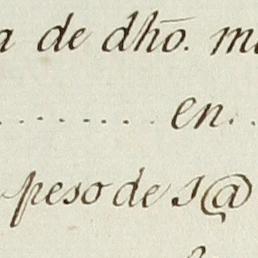 a de dhõ. m
........ en..
peso de 1@